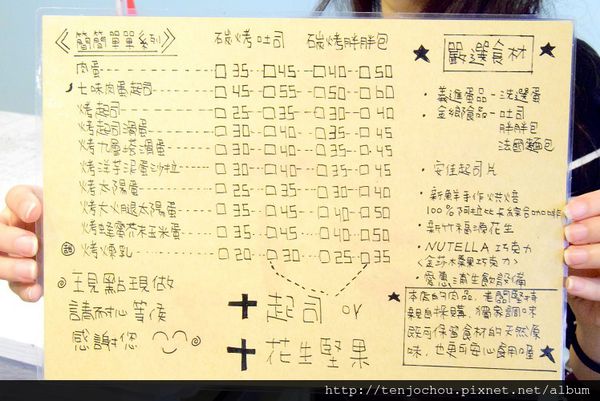 《簡簡單單系列》 碳烤吐司 碳烤胖胖包
肉蛋 35 45 40 50
七味肉蛋起司 45 55 50 60
烤起司 25 35 30 40
烤起司滑蛋 30 40 35 45
烤九層塔滑蛋 30 40 35 45
烤洋芋泥蛋沙拉 30 40 35 45
烤太陽蛋 25 35 30 40
烤火腿太陽蛋 35 45 40 50
烤蜂蜜芥末玉米蛋 30 40 40 50
烤煉乳 20 30 25 35
現點現做
請耐心等候
感謝您
+ 起司 or
+ 花生堅果
嚴選食材
·義進蛋品-洗選蛋
·金鄉食品-吐司
胖胖包
法國麵包
·安佳起司片
·新鮮手作烘焙
100%阿拉比卡綜合咖啡
·新竹福源花生
·NUTELLA 巧克力
<金莎榛果巧克力>
·愛惠浦生飲設備
本店的肉品,老闆堅持
親自採購,獨家調味
既可保留食材的天然原
味,也更可安心食用喔
http://tenjochou.pixnet.net/album